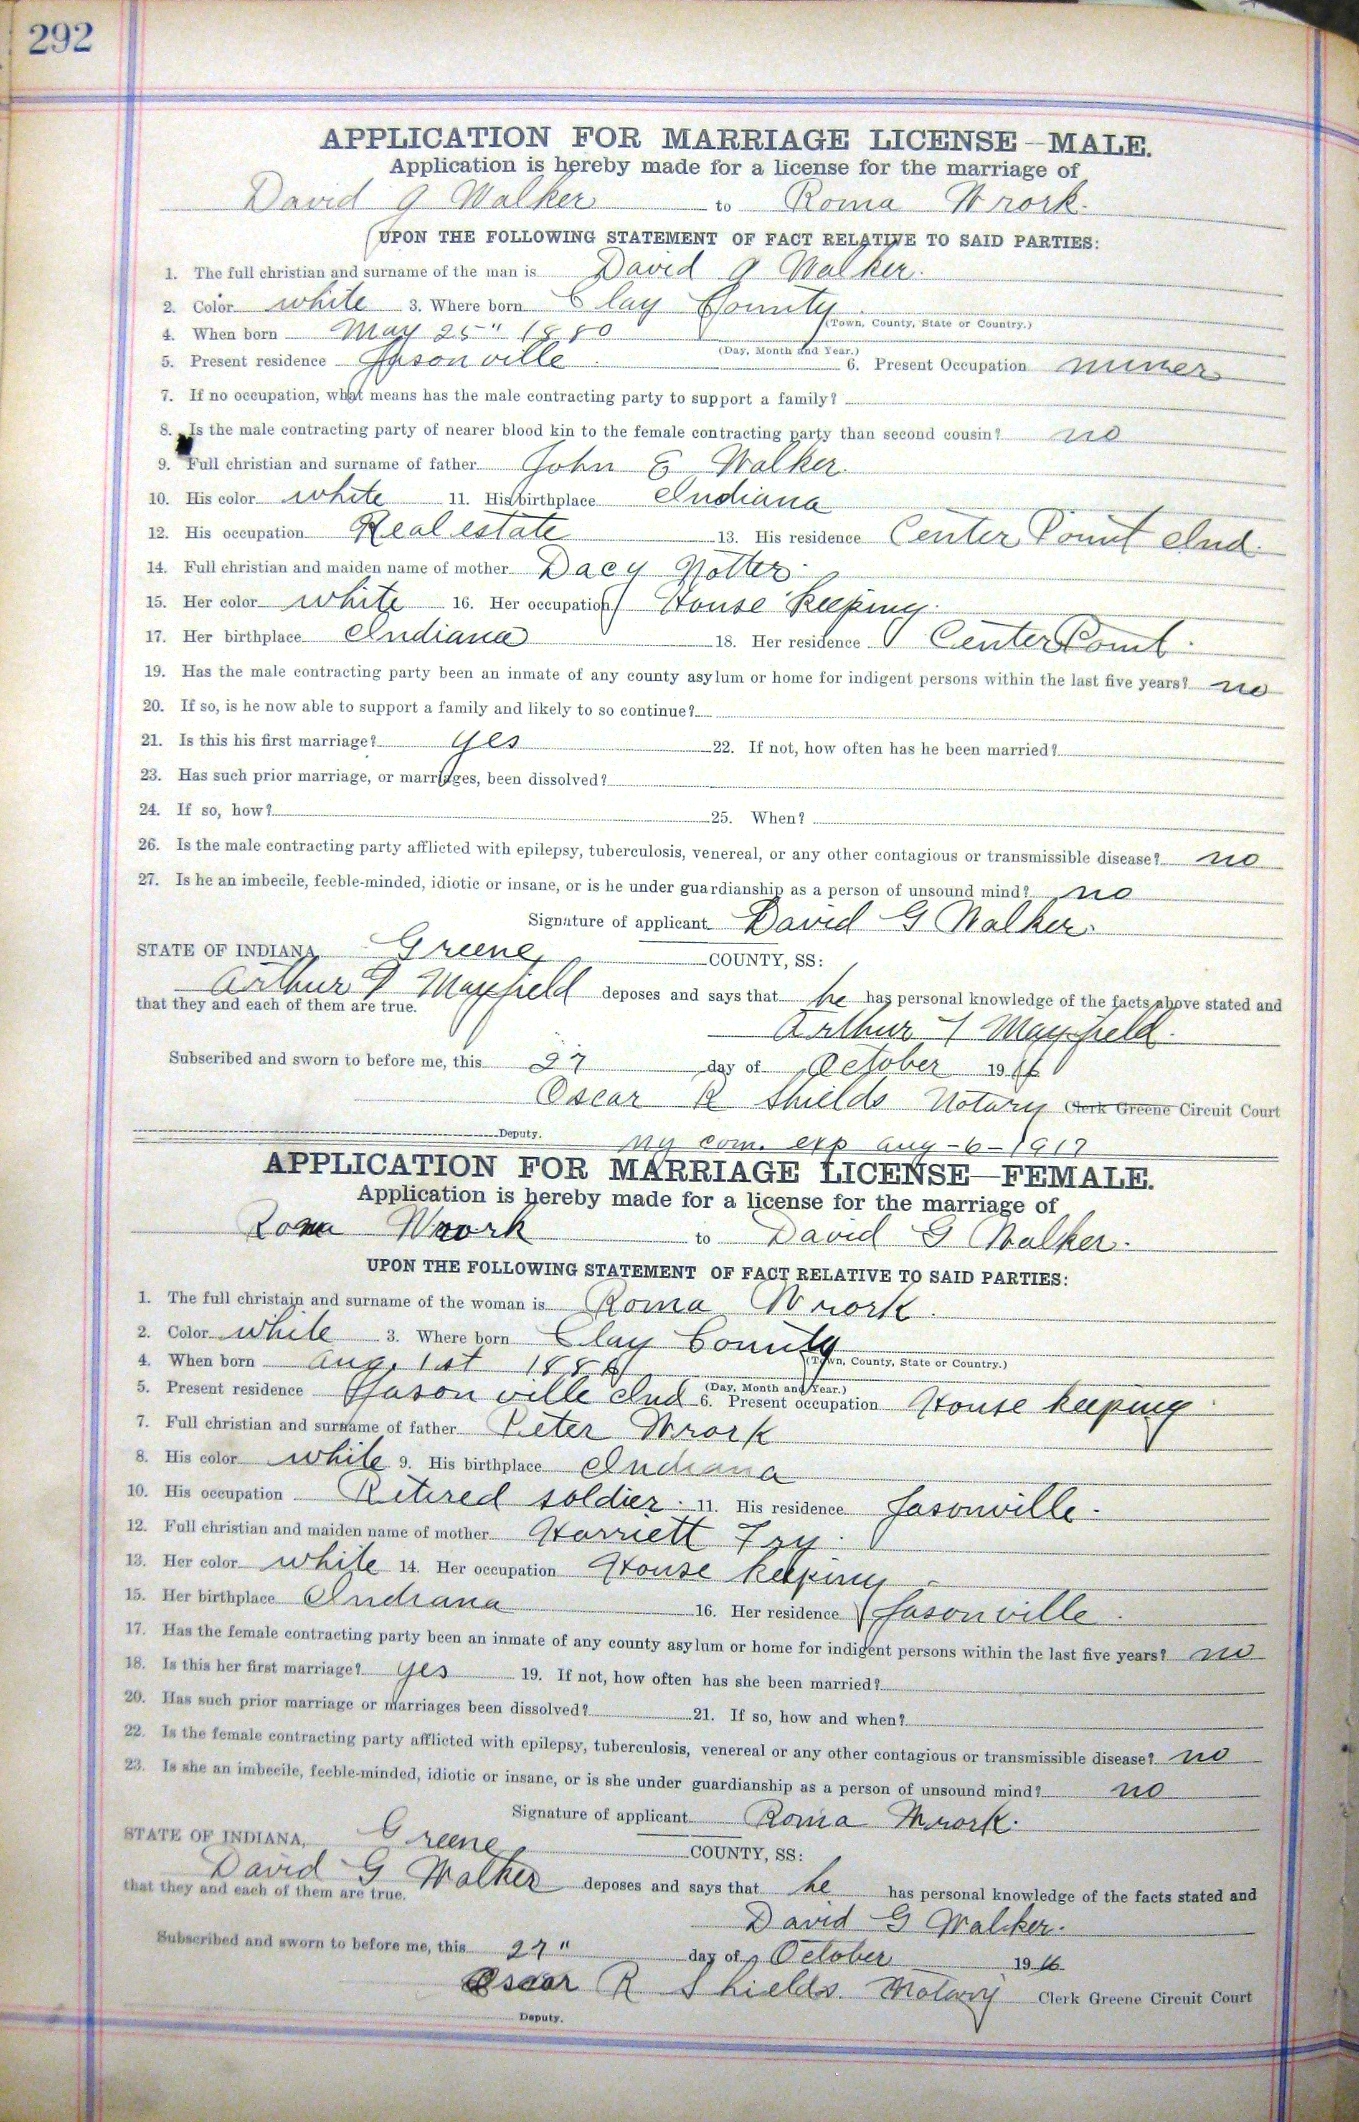 292
APPLICATION FOR MARRIAGE LICENSE—MALE.
Application is hereby made for a license for the marriage of
David G Walker to Roma Wrork.
UPON THE FOLLOWING STATEMENT OF FACT RELATIVE TO SAID PARTIES:
1. The full christian and surname of the man is David G Walker.
2. Color white 3. Where born Clay County
(Town, County, State or Country.)
4. When born May 25" 1880
(Day, Month and Year.)
5. Present residence Jasonville 6. Present Occupation miner
7. If no occupation, what means has the male contracting party to support a family?
8. Is the male contracting party of nearer blood kin to the female contracting party than second cousin? no
9. Full christian and surname of father John E Walker.
10. His color white 11. His birthplace Indiana
12. His occupation Real estate 13. His residence Center Point Ind.
14. Full christian and maiden name of mother Dacy Notter.
15. Her color white 16. Her occupation House keeping.
17. Her birthplace Indiana 18. Her residence Center Point.
19. Has the male contracting party been an inmate of any county asylum or home for indigent persons within the last five years? no
20. If so, is he now able to support a family and likely to so continue?
21. Is this his first marriage? yes 22. If not, how often has he been married?
23. Has such prior marriage, or marriages, been dissolved?
24. If so, how? 25. When?
26. Is the male contracting party afflicted with epilepsy, tuberculosis, venereal, or any other contagious or transmissible disease? no
27. Is he an imbecile, feeble-minded, idiotic or insane, or is he under guardianship as a person of unsound mind? no
Signature of applicant David G Walker.
STATE OF INDIANA Greene COUNTY, SS:
Arthur F Mayfield deposes and says that he has personal knowledge of the facts above stated and
that they and each of them are true.
Arthur F Mayfield.
Subscribed and sworn to before me, this 27 day of October 1916
Oscar R Shields Notary Clerk Greene Circuit Court
Deputy. My com. exp Aug-6-1917
APPLICATION FOR MARRIAGE LICENSE—FEMALE.
Application is hereby made for a license for the marriage of
Roma Wrork to David G Walker.
UPON THE FOLLOWING STATEMENT OF FACT RELATIVE TO SAID PARTIES:
1. The full christain and surname of the woman is Roma Wrork.
2. Color white 3. Where born Clay County
(Town, County, State or Country.)
4. When born Aug. 1st
(Day, Month and Year.)
5. Present residence Jasonville Ind 6. Present occupation House keeping
7. Full christian and surname of father Peter Wrork
8. His color white 9. His birthplace Indiana
10. His occupation Retired soldier. 11. His residence Jasonville.
12. Full christian and maiden name of mother Harriett Fry.
13. Her color white 14. Her occupation House keeping
15. Her birthplace Indiana 16. Her residence Jasonville.
17. Has the female contracting party been an inmate of any county asylum or home for indigent persons within the last five years? no
18. Is this her first marriage? yes 19. If not, how often has she been married?
20. Has such prior marriage or marriages been dissolved? 21. If so, how and when?
22. Is the female contracting party afflicted with epilepsy, tuberculosis, venereal or any other contagious or transmissible disease? no
23. Is she an imbecile, feeble-minded, idiotic or insane, or is she under guardianship as a person of unsound mind? no
Signature of applicant Roma Wrork.
STATE OF INDIANA, Greene COUNTY, SS:
David G Walker deposes and says that he has personal knowledge of the facts stated and
that they and each of them are true.
David G Walker.
Subscribed and sworn to before me, this 27" day of October 1916
Oscar R Shields. Notary Clerk Greene Circuit Court
Deputy.